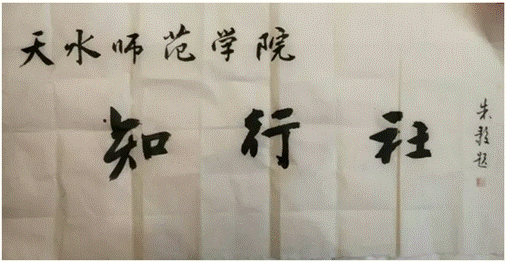 天水师范学院
知行社
朱毅题